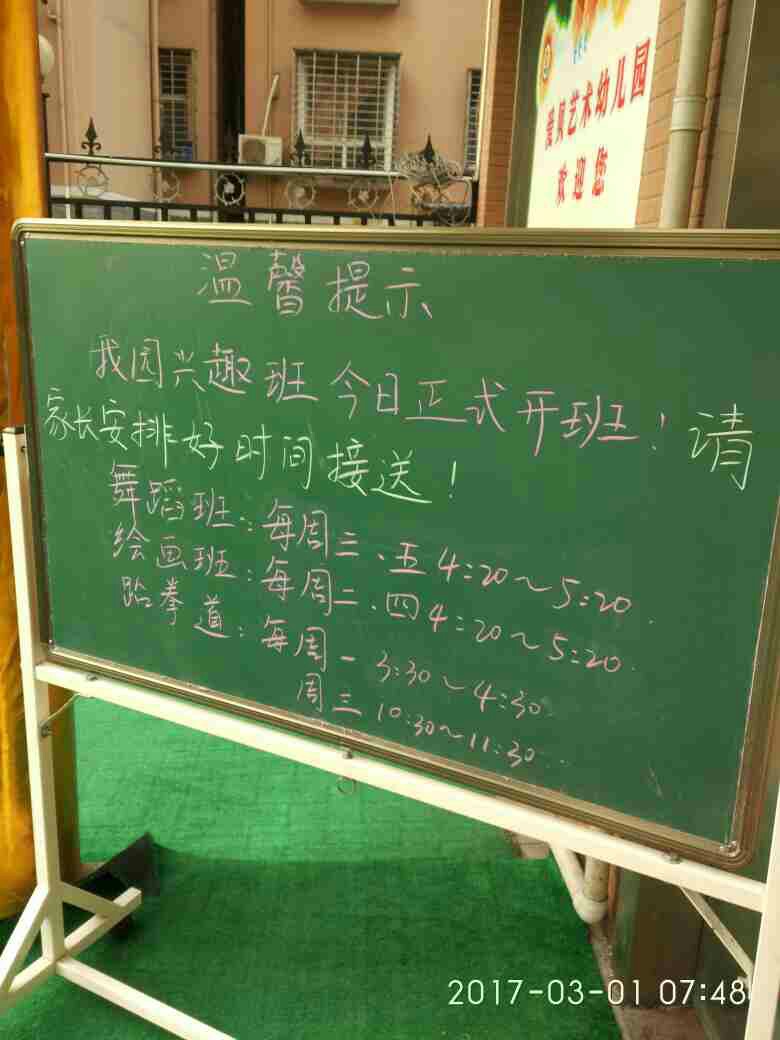 爱贝艺术幼儿园
欢迎您
温馨提示
我园兴趣班今日正式开班！请
家长安排好时间接送！
舞蹈班：每周三、五4:20~5:20
绘画班：每周二、四4:20~5:20
跆拳道：每周一 3:30~4:30
周三 10:30~11:30
2017-03-01 07:48